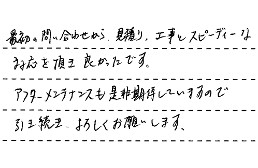 最初の問い合わせから、見積り、工事とスピーディーな
対応を頂き良かったです。
アフターメンテナンスも是非期待していますので
引き続き、よろしくお願いします。